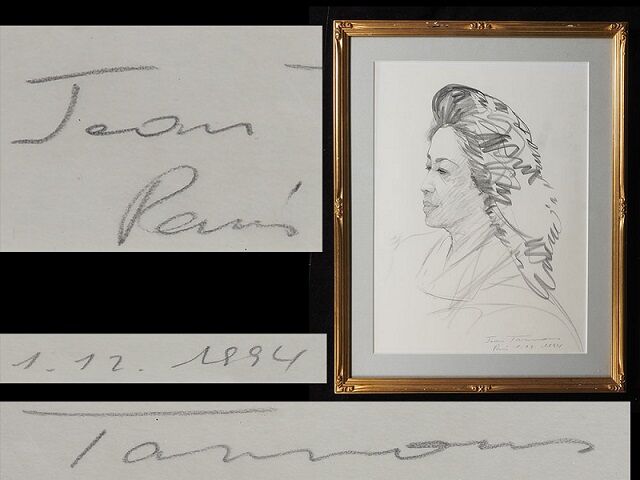 Jean
Paris
1.12. 1994
Tannous
Jean Tannous
Paris 1.12. 1994